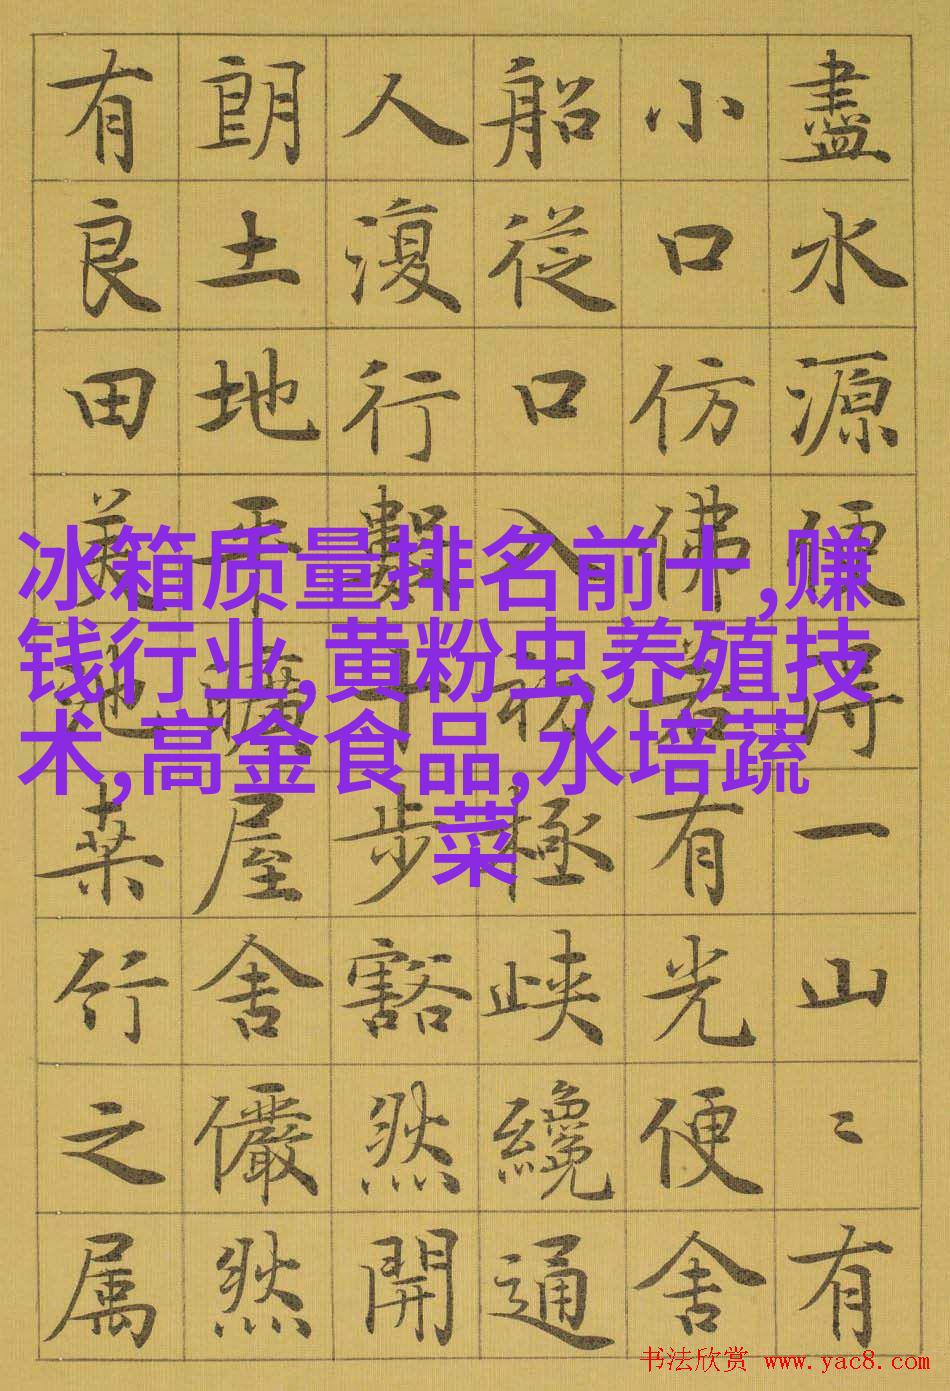 盡水源便得一山〻有
小口仿佛若有光便舍
船從口入初極峽纔通
人復行數十步豁然開
朗土地平曠屋舍儼然
有良田美池桑竹之属
冰箱质量排名前十,赚
钱行业,黄粉虫养殖技
术,高金食品,水培蔬
菜
书法欣赏 www.yac8.com